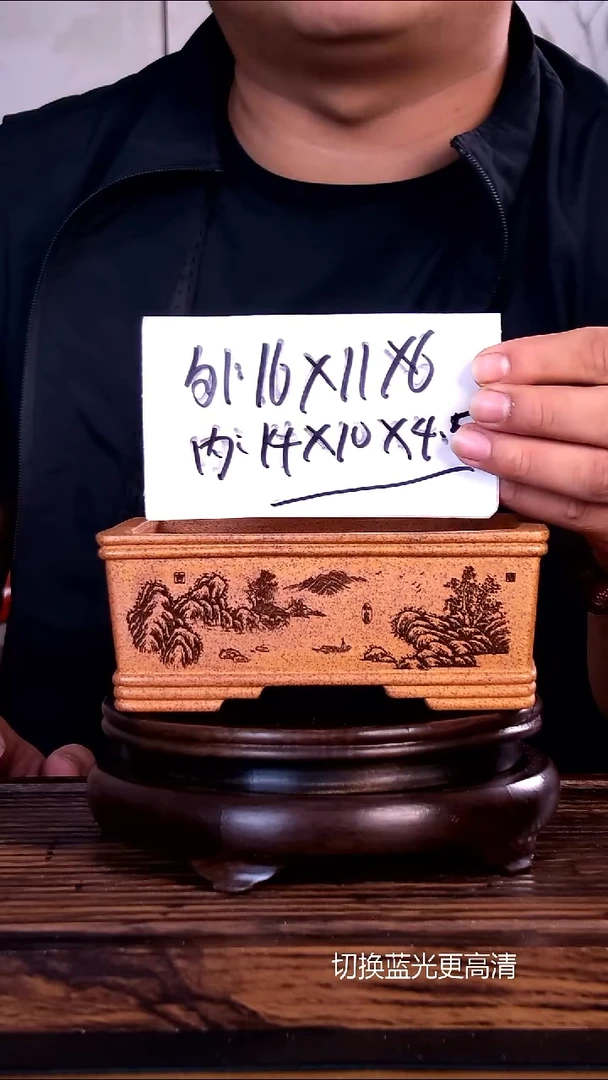 外:16×11×6
内:14×10×4.5
切换蓝光更高清